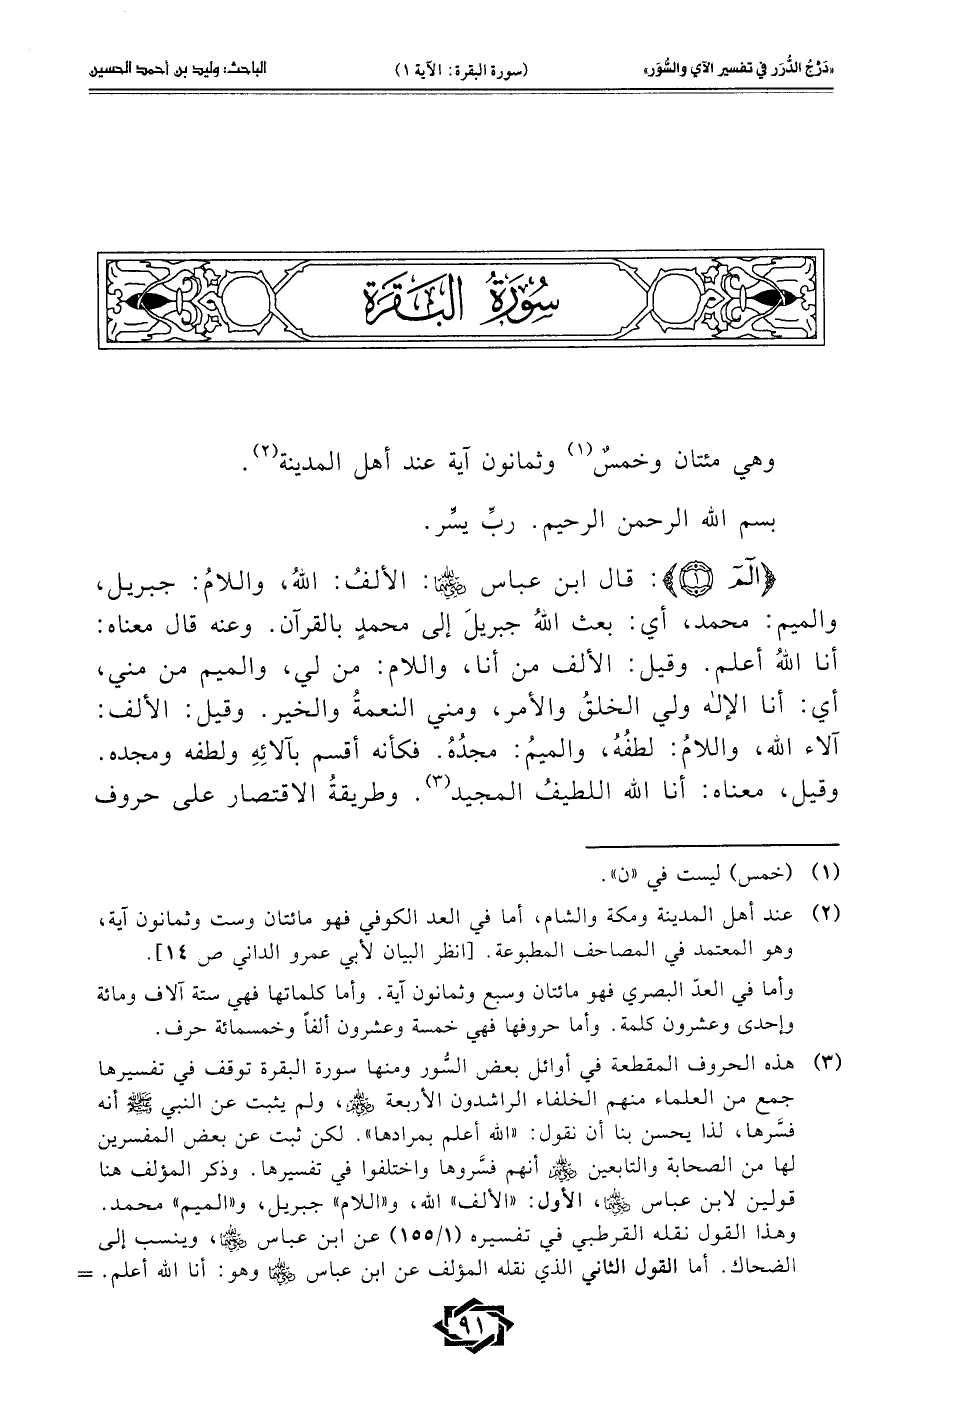 «دَرْجُ الدُّرَر في تفسير الآي والسُّوَر» (سورة البقرة: الآية ١) الباحث: وليد بن أحمد الحسين
سُورَةُ البَقَرَة
وهي مئتان وخمسٌ(١) وثمانون آية عند أهل المدينة(٢).
بسم الله الرحمن الرحيم. ربِّ يسِّر.
﴿الٓمٓ ١﴾: قال ابن عباس ﵄: الألفُ: اللهُ، واللامُ: جبريل،
والميم: محمد، أي: بعث اللهُ جبريلَ إلى محمدٍ بالقرآن. وعنه قال معناه:
أنا اللهُ أعلم. وقيل: الألف من أنا، واللام: من لي، والميم من مني،
أي: أنا الإلٰه ولي الخلقُ والأمر، ومني النعمةُ والخير. وقيل: الألف:
آلاء الله، واللامُ: لطفُهُ، والميمُ: مجدُهُ. فكأنه أقسم بآلائِهِ ولطفه ومجده.
وقيل، معناه: أنا الله اللطيفُ المجيد(٣). وطريقةُ الاقتصار على حروف
(١) (خمس) ليست في «ن».
(٢) عند أهل المدينة ومكة والشام، أما في العد الكوفي فهو مائتان وست وثمانون آية،
وهو المعتمد في المصاحف المطبوعة. [انظر البيان لأبي عمرو الداني ص ١٤].
وأما في العدّ البصري فهو مائتان وسبع وثمانون آية. وأما كلماتها فهي ستة آلاف ومائة
وإحدى وعشرون كلمة. وأما حروفها فهي خمسة وعشرون ألفاً وخمسمائة حرف.
(٣) هذه الحروف المقطعة في أوائل بعض السُّور ومنها سورة البقرة توقف في تفسيرها
جمع من العلماء منهم الخلفاء الراشدون الأربعة ﵃، ولم يثبت عن النبي ﷺ أنه
فسَّرها، لذا يحسن بنا أن نقول: «الله أعلم بمرادها». لكن ثبت عن بعض المفسرين
لها من الصحابة والتابعين ﵃ أنهم فسَّروها واختلفوا في تفسيرها. وذكر المؤلف هنا
قولين لابن عباس ﵄، الأول: «الألف» الله، و«اللام» جبريل، و«الميم» محمد.
وهذا القول نقله القرطبي في تفسيره (١/١٥٥) عن ابن عباس ﵄، وينسب إلى
الضحاك. أما القول الثاني الذي نقله المؤلف عن ابن عباس ﵄ وهو: أنا الله أعلم. =
٩١